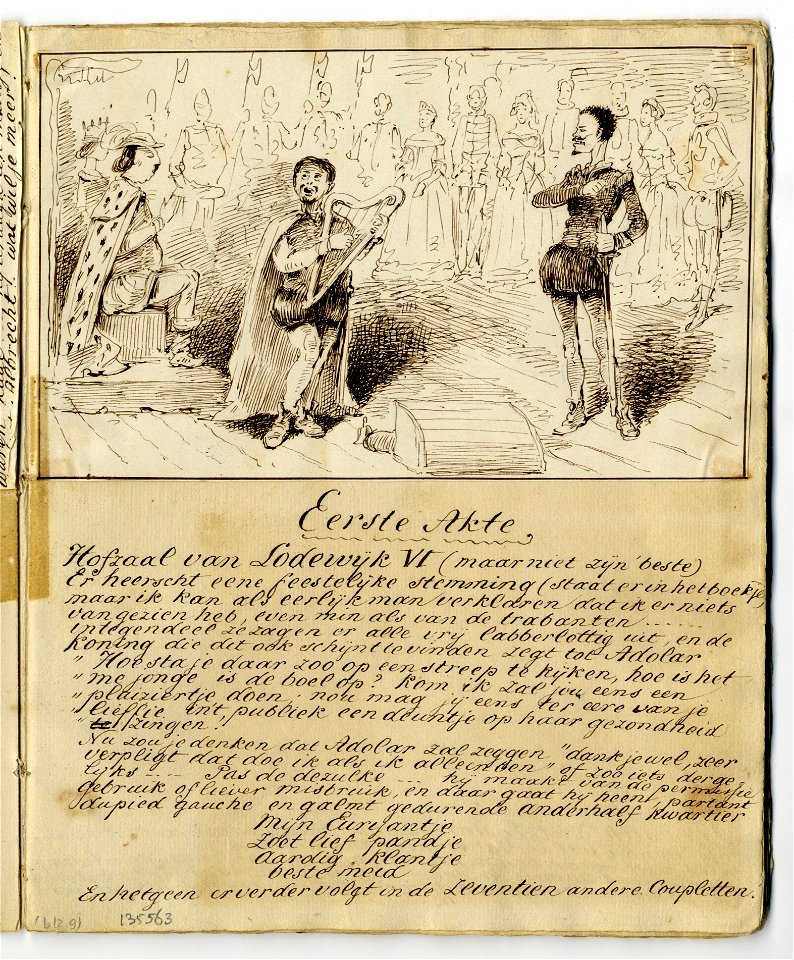 Eerste Akte,
Hofzaal van Lodewijk VI (maar niet zijn' beste)
Er heerscht eene feestelijke stemming (staat er in het boekje,)
maar ik kan als eerlijk man verklaren dat ik er niets
van gezien heb, even min als van de trabanten ......
integendeel ze zagen er alle vrij labberlottig uit, en de
koning die dit ook schijnt te vinden zegt tot Adolar
" Hoe sta je daar zoo op een streep te kijken, hoe is het
" me jonge is de boel op? kom ik zal jou eens een
" pluiziertje doen: nou mag jij eens ter eere van je
" lieffie in't publiek een deuntje op haar gezondheid
" zingen!
Nu zou je denken dat Adolar zal zeggen "dank je wel, zeer
verpligt dat doe ik als ik alleen ben" of zoo iets derge-
lijks .... Pas de dezulke ... hij maakt van de permissie
gebruik of liever misbruik, en daar gaat hij heen, partant
du pied gauche en galmt gedurende anderhalf kwartier
Mijn Eurijantje
Zoet lief pandje
Aardig klantje
beste meid
En hetgeen er verder volgt in de Zeventien andere Coupletten!
(blz 9) 135563
albrecht! wat wil je meer!